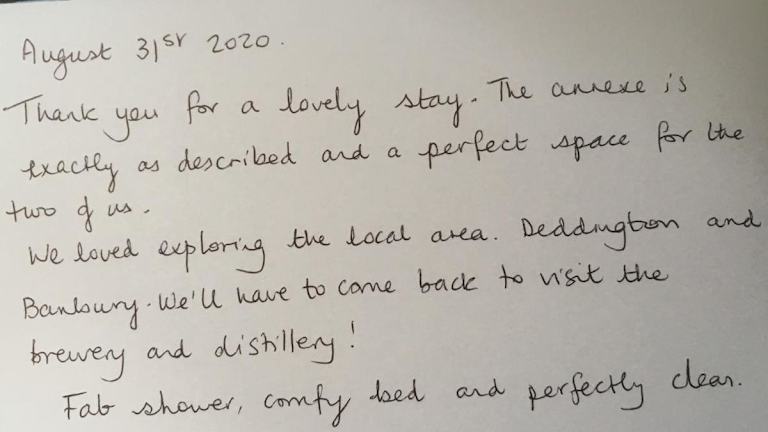 August 31st 2020.
Thank you for a lovely stay. The annexe is
exactly as described and a perfect space for the
two of us.
We loved exploring the local area. Deddington and
Banbury. We'll have to come back to visit the
brewery and distillery!
Fab shower, comfy bed and perfectly clean.